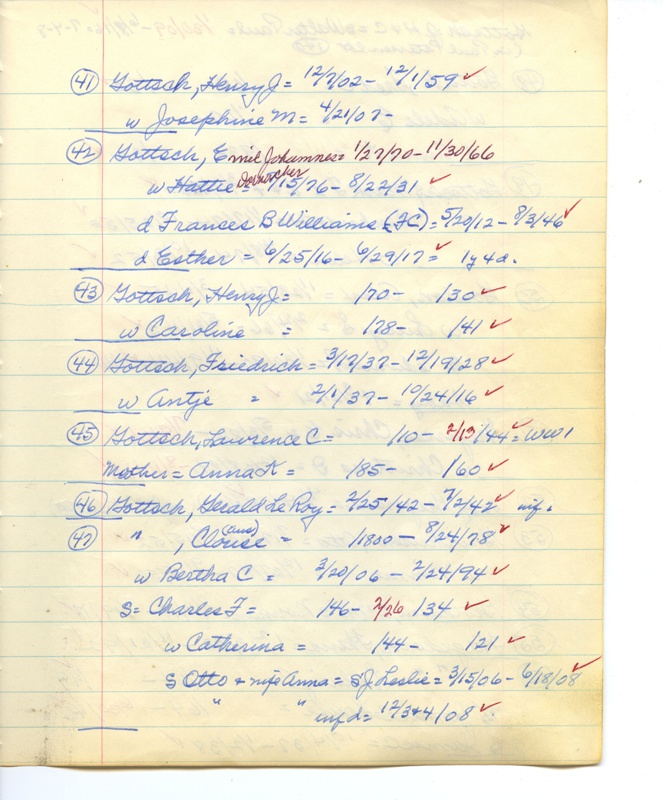 41 Gottsch, Henry J = 12/7/02 - 12/1/59 ✓
w Josephine M = 4/21/07 -
42 Gottsch, Emil Johannes = 1/27/70 - 11/30/66
w Hattie = /15/76 - 8/22/31 ✓
d Frances B Williams (FC) = 5/20/12 - 8/3/46 ✓
d Esther = 6/25/16 - 6/29/17 = ✓ 1y 4d.
43 Gottsch, Henry J = /70 - /30 ✓
w Caroline = /78 - /41 ✓
44 Gottsch, Friedrich = 3/17/37 - 12/19/28 ✓
w Antje = 2/1/37 - 10/24/16 ✓
45 Gottsch, Lawrence C = /10 - 2/13/44 ✓ = WW1
Mother = Anna K = /85 - /60 ✓
46 Gottsch, Gerald Le Roy = 2/25/42 - 7/2/42 ✓ inf.
47 " , (aus) = /1800 - 8/24/78 ✓
w Bertha C = 3/20/06 - 2/24/94 ✓
S = Charles F = /46 - 2/26 /34 ✓
w Catherina = /44 - /21 ✓
S Otto + wife Anna = S J. Leslie = 3/15/06 - 6/18/08 ✓
" " inf d = 12/3+4/08 ✓